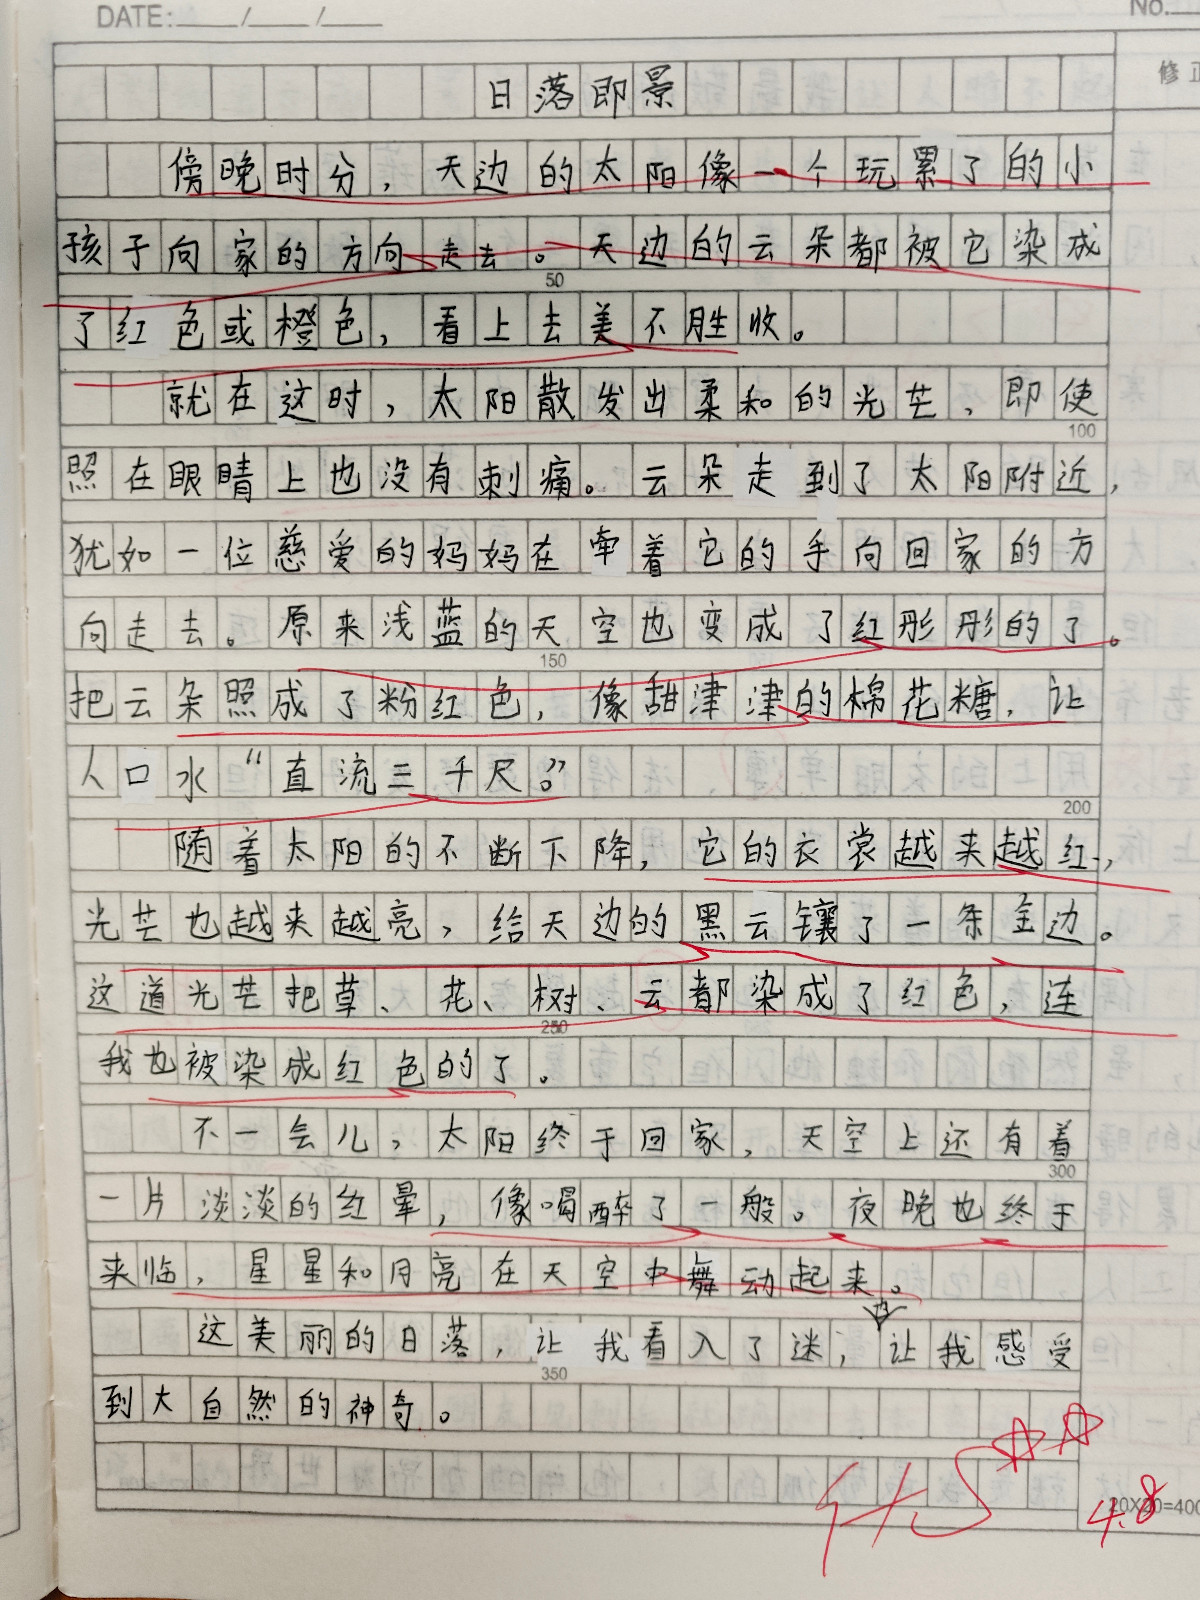 DATE: / /
No.
修正
日落即景
傍晚时分，天边的太阳像一个玩累了的小
孩子向家的方向走去。天边的云朵都被它染成
50
了红色或橙色，看上去美不胜收。
就在这时，太阳散发出柔和的光芒，即使
100
照在眼睛上也没有刺痛。云朵走到了太阳附近，
犹如一位慈爱的妈妈在牵着它的手向回家的方
向走去。原来浅蓝的天空也变成了红彤彤的了。
150
把云朵照成了粉红色，像甜津津的棉花糖，让
人口水“直流三千尺”。
200
随着太阳的不断下降，它的衣裳越来越红，
光芒也越来越亮，给天边的黑云镶了一条金边。
这道光芒把草、花、树、云都染成了红色，连
250
我也被染成红色的了。
不一会儿，太阳终于回家，天空上还有着
300
一片淡淡的红晕，像喝醉了一般。夜晚也终于
来临，星星和月亮在天空中舞动起来。
这美丽的日落，让我看入了迷，也让我感受
350
到大自然的神奇。
优
20X20=400
4.8